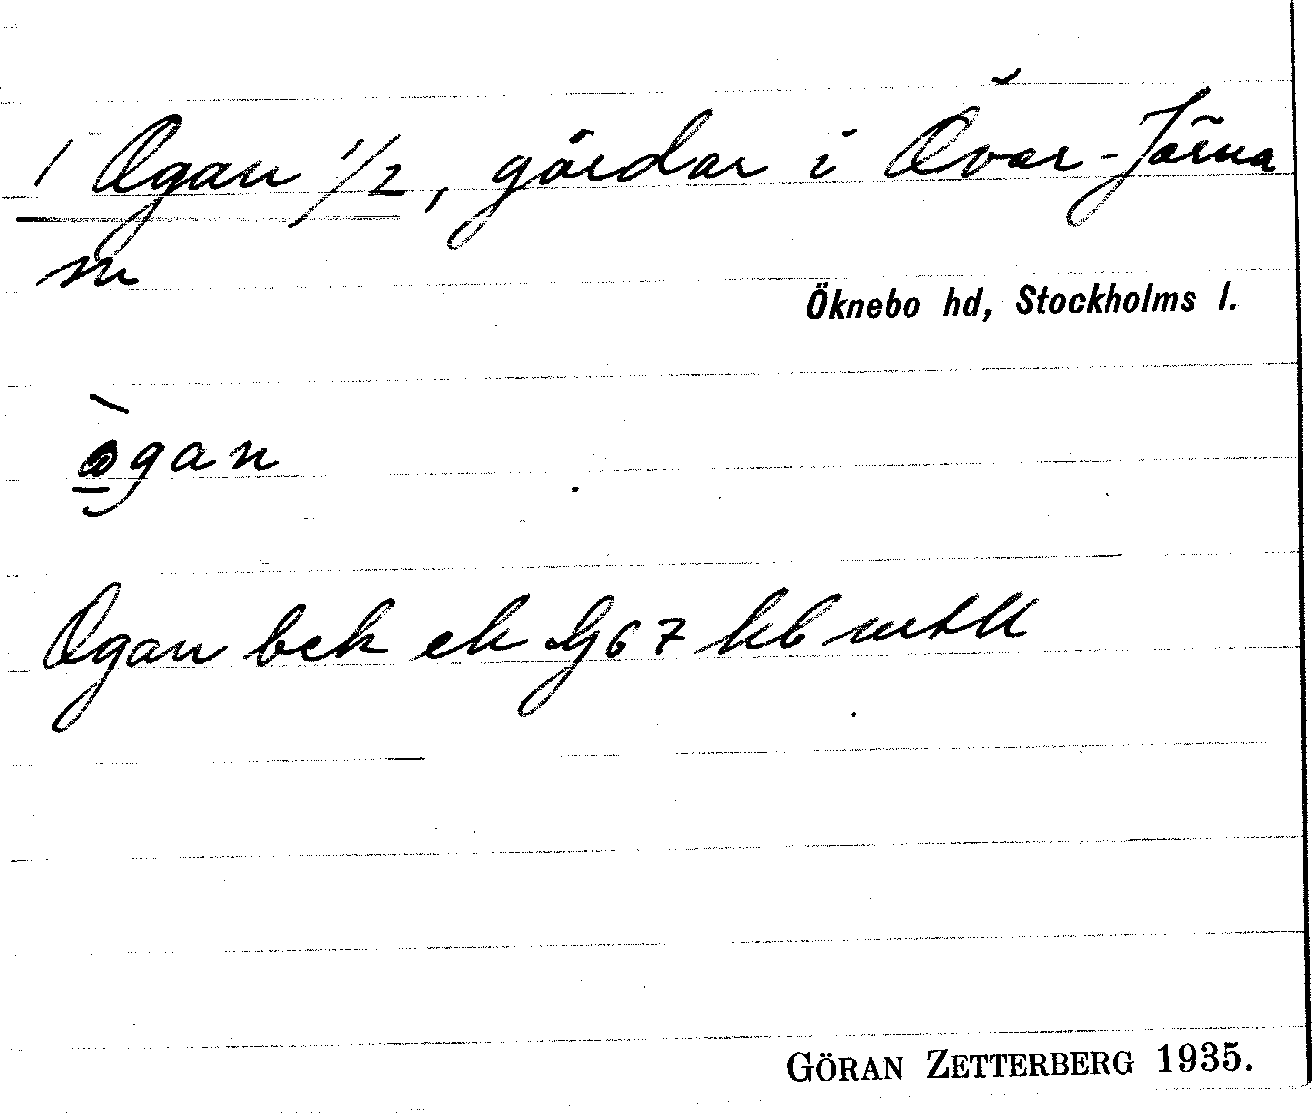 1 Ogan 1/2, gårdar i Över-Järna
sn
Öknebo hd, Stockholms l.
ògan
Ogan bek ek Jg67 hb mtll
GÖRAN ZETTERBERG 1935.